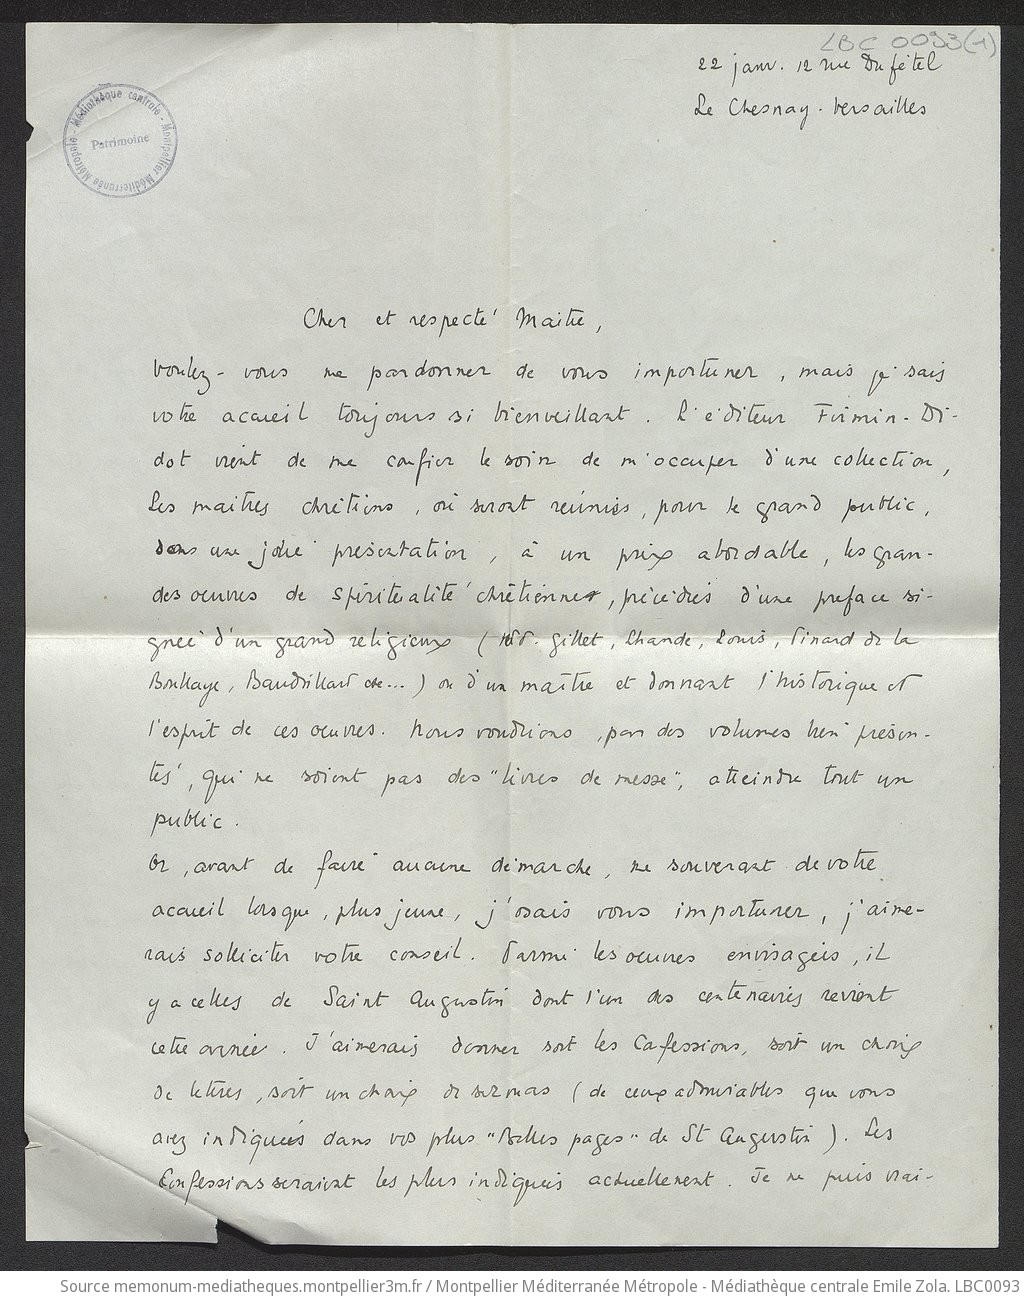 LBC 0093(1)
22 janv. 12 rue Dufétel
Le Chesnay. Versailles
Médiathèque centrale - Montpellier Méditerranée Métropole -
Patrimoine
Cher et respecté Maitre,
Voulez-vous me pardonner de vous importuner, mais je sais
votre accueil toujours si bienveillant. L'éditeur Firmin-Di-
dot vient de me confier le soin de m'occuper d'une collection,
Les maitres chrétiens, où seront réunies, pour le grand public,
dans une jolie présentation, à un prix abordable, les gran-
des oeuvres de spiritualité chrétienne, précédées d'une preface si-
gnée d'un grand religieux (RP. Gillet, Chande, Louis, Pinard de la
Boullaye, Baudrillart etc...) ou d'un maître et donnant l'historique et
l'esprit de ces oeuvres. Nous voudrions, par des volumes bien présen-
tés, qui ne soient pas des "livres de messe", atteindre tout un
public.
Or, avant de faire aucune démarche, me souvenant de votre
accueil lorsque, plus jeune, j'osais vous importuner, j'aime-
rais solliciter votre conseil. Parmi les oeuvres envisagées, il
y a celles de Saint Augustin dont l'un des centenaires revient
cette année. J'aimerais donner soit les Confessions, soit un choix
de lettres, soit un choix de sermons (de ceux admirables que vous
avez indiqués dans vos plus "Belles pages" de St Augustin). Les
Confessions seraient les plus indiquées actuellement. Je ne puis vrai-
Source memonum-mediatheques.montpellier3m.fr / Montpellier Méditerranée Métropole - Médiathèque centrale Emile Zola. LBC0093